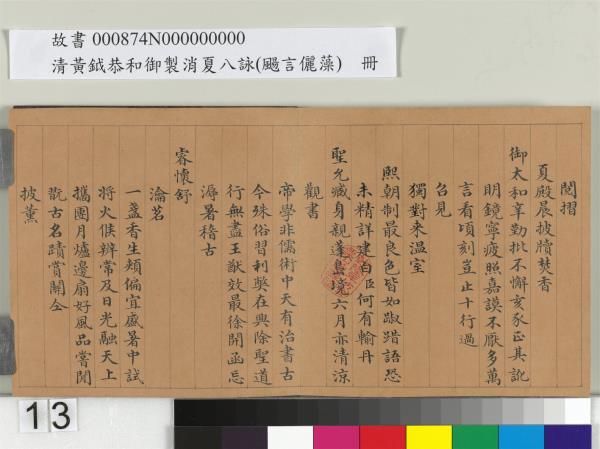 故書 000874N000000000
清黃鉞恭和御製消夏八詠(颺言儷藻)　冊
閱摺
夏殿晨披牘焚香
御太和辛勤批不懈亥豕正其訛
明鏡寧疲照嘉謨不厭多萬
言看頃刻豈止十行過
召見
獨對來溫室
熙朝制最良色皆如踧踖語恐
未精詳建白臣何有輸丹
聖允臧身親蓬島境六月亦清涼
觀書
帝學非儒術中天有治書古
今殊俗習利弊在興除聖道
行無盡王猷效最徐開函忘
溽暑稽古
睿懷舒
瀹茗
一盞香生頰偏宜盛暑中試
將火候辨常及日光融天上
攜團月爐邊扇好風品嘗閒
翫古名蹟賞開全
披薰
13